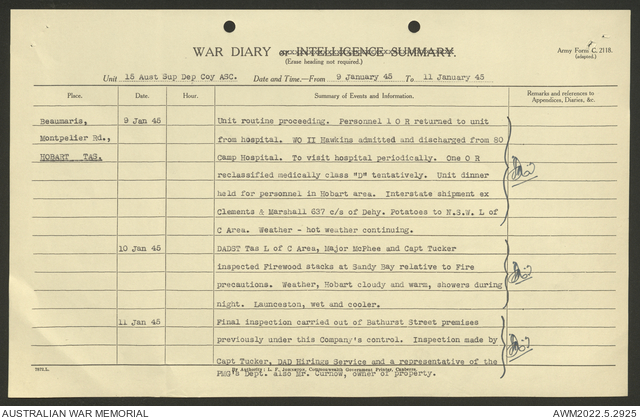 WAR DIARY or INTELLIGENCE SUMMARY.
(Erase heading not required.)
Army Form C. 2118.
(adapted.)
Unit 15 Aust Sup Dep Coy ASC. Date and Time.—From 9 January 45 To 11 January 45
Place. Date. Hour. Summary of Events and Information. Remarks and references to Appendices, Diaries, &c.
Beaumaris, 9 Jan 45 Unit routine proceeding. Personnel 1 O R returned to unit
Montpelier Rd., from hospital. WO II Hawkins admitted and discharged from 80
HOBART TAS. Camp Hospital. To visit hospital periodically. One O R
reclassified medically class "D" tentatively. Unit dinner
held for personnel in Hobart area. Interstate shipment ex
Clements & Marshall 637 c/s of Dehy. Potatoes to N.S.W. L of
C Area. Weather - hot weather continuing.
10 Jan 45 DADST Tas L of C Area, Major McPhee and Capt Tucker
inspected Firewood stacks at Sandy Bay relative to Fire
precautions. Weather, Hobart cloudy and warm, showers during
night. Launceston, wet and cooler.
11 Jan 45 Final inspection carried out of Bathurst Street premises
previously under this Company's control. Inspection made by
Capt Tucker, DAD Hirings Service and a representative of the
PMG's Dept. also Mr. Curnow, owner of property.
By Authority: L. F. Johnston, Commonwealth Government Printer, Canberra.
AUSTRALIAN WAR MEMORIAL
AWM2022.5.2925